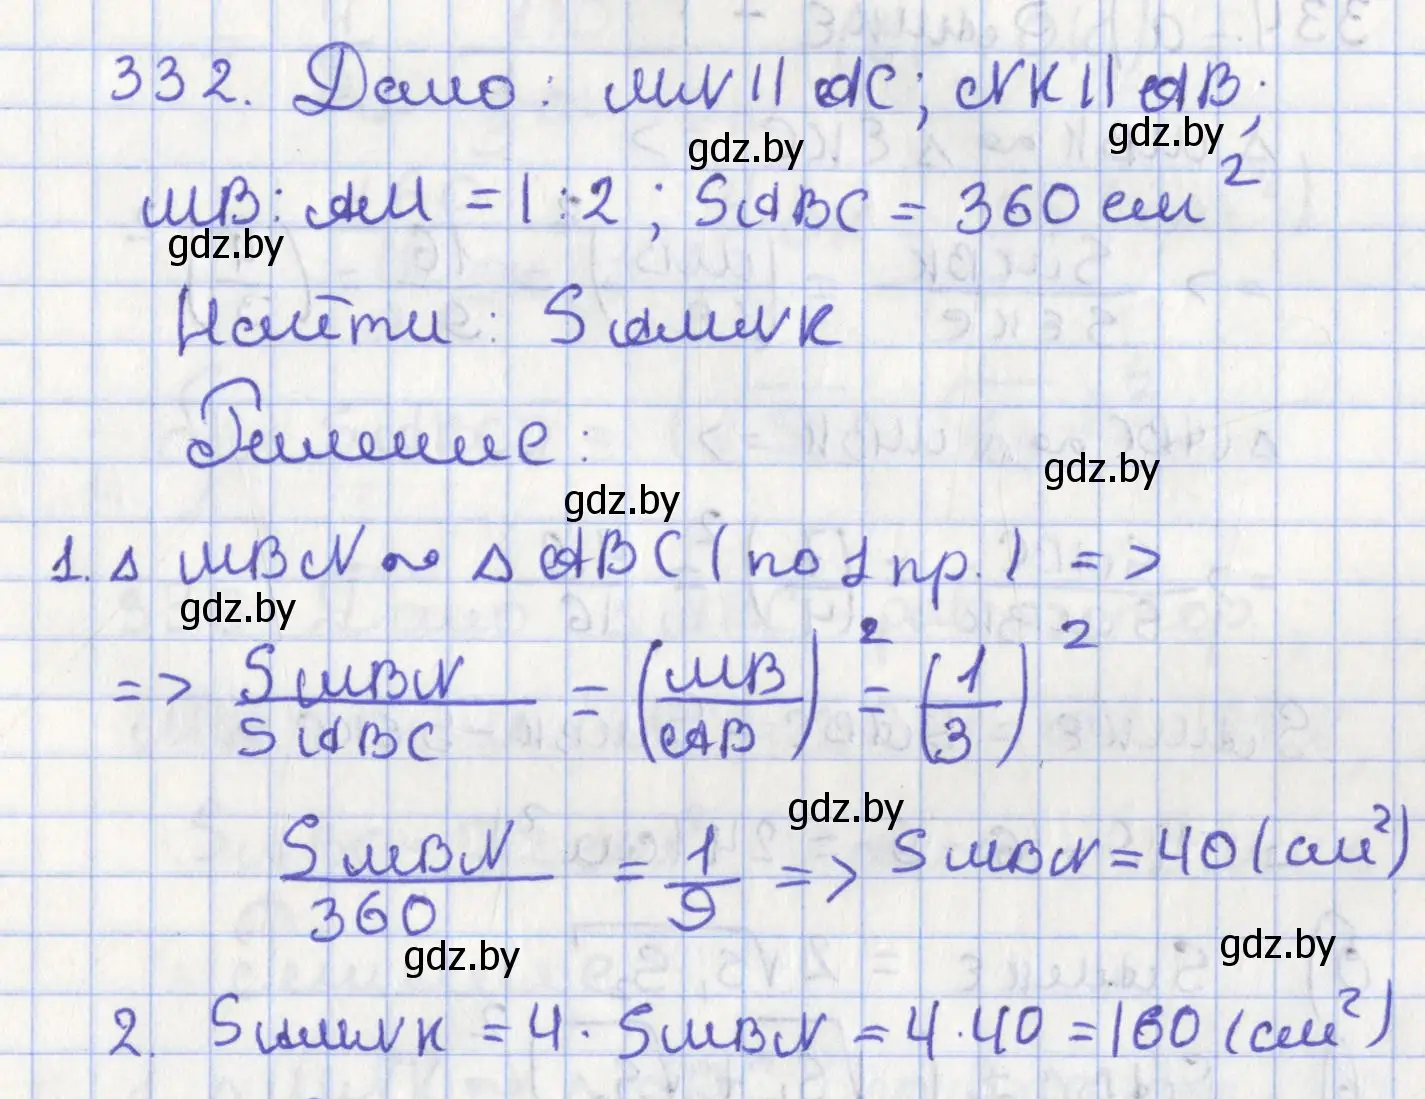 332. Дано: MN || AC; NK || AB;
gdz.by gdz.by
MB : AM = 1 : 2; SABC = 360 см²
gdz.by
Найти: SAMNK
Решение:
gdz.by
gdz.by
1. Δ MBN ~ Δ ABC (по 1 пр.) =>
gdz.by
=> SMBN / SABC = (MB / AB)² = (1 / 3)²
gdz.by
SMBN / 360 = 1 / 9 => SMBN = 40 (см²)
gdz.by gdz.by
2. SAMNK = 4 · SMBN = 4 · 40 = 160 (см²)